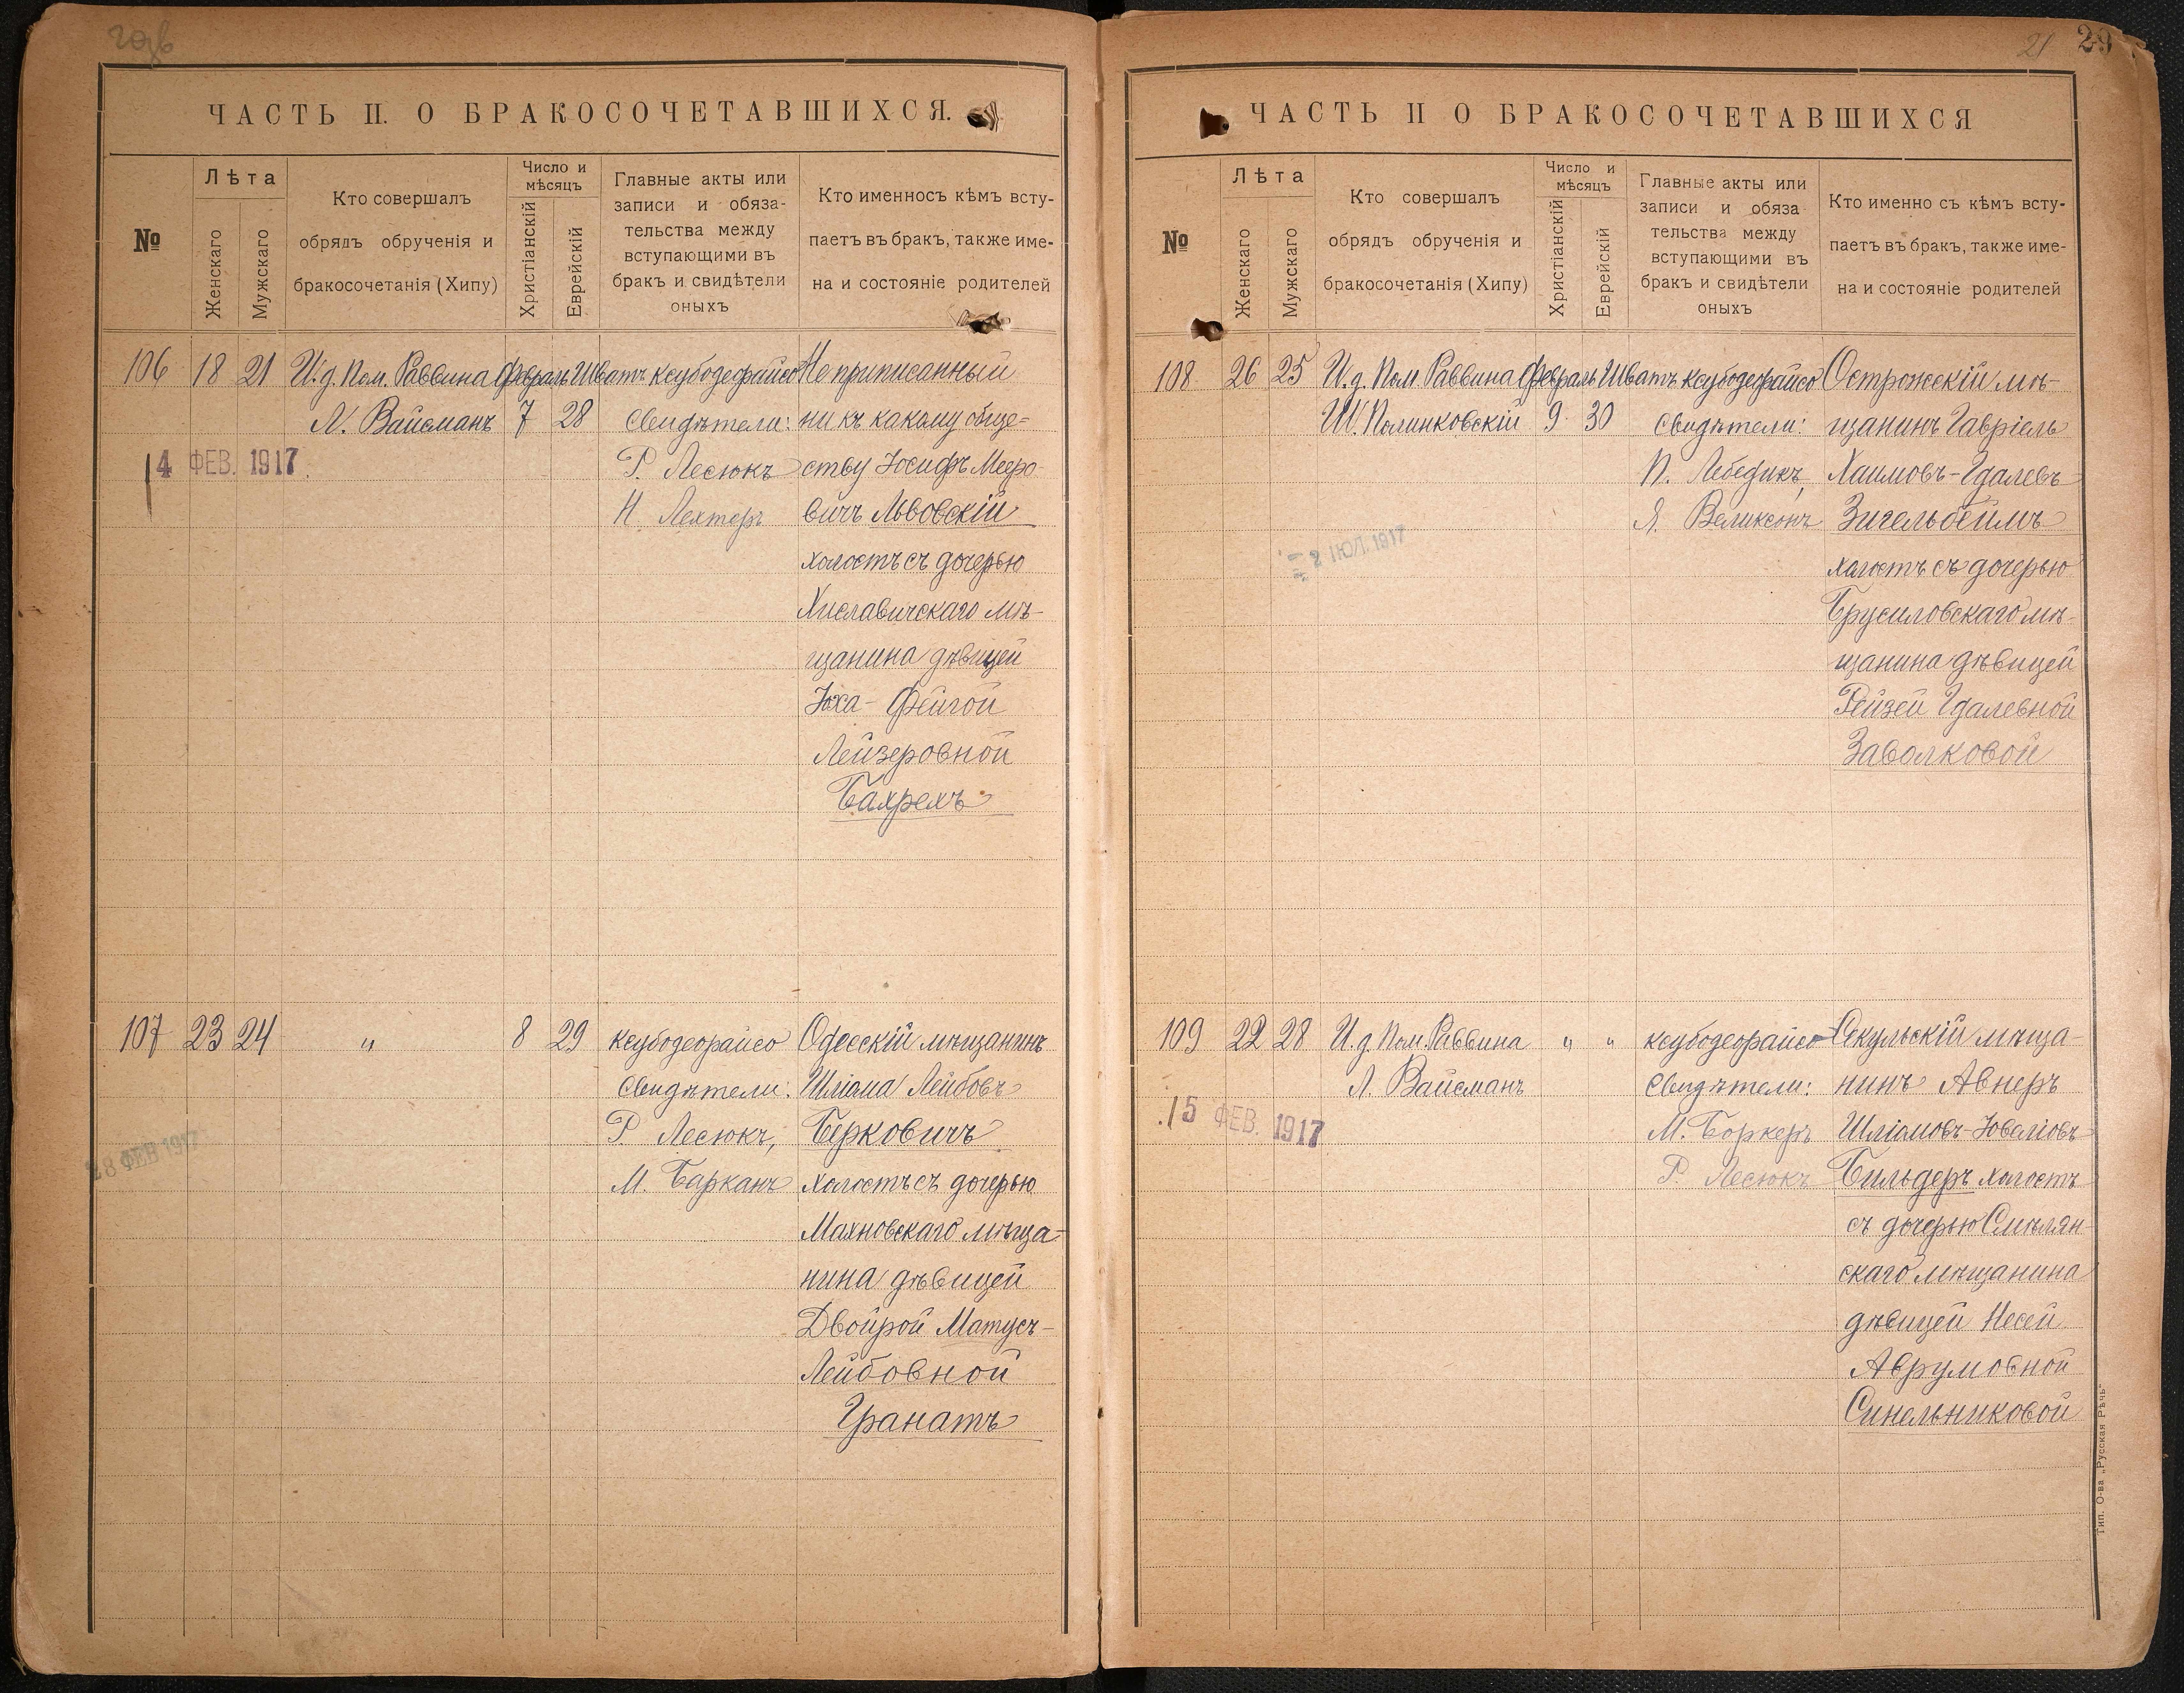 21 29
ЧАСТЬ II. О БРАКОСОЧЕТАВШИХСЯ.
№
Лѣта
Женскаго
Мужскаго
Кто совершалъ
обрядъ обрученія и
бракосочетанія (Хипу)
Число и
мѣсяцъ
Христіанскій
Еврейскій
Главные акты или
записи и обяза-
тельства между
вступающими въ
бракъ и свидѣтели
оныхъ
Кто именносъ кѣмъ всту-
паетъ въ бракъ, также име-
на и состояніе родителей
106 18 21 И. д. Пом. Раввина Февраль Шватъ Ксубодеорайсо Не приписанный
Л. Вайсманъ 7 28 Свидѣтели: ни къ какому обще=
14 ФЕВ. 1917 Р. Лесюкъ ству Іосифъ Мееро-
Н. Лехтеръ вичъ Львовскій
холостъ съ дочерью
Хиславичскаго мѣ-
щанина дѣвицей
Юха-Фейгой
Лейзеровной
Бахрехъ
107 23 24 „ 8 29 Ксубодеорайсо Одесскій мѣщанинъ
Свидѣтели: Шліома Лейбовъ
Р. Лесюкъ, Берковичъ
28 ФЕВ 1917 М. Барканъ холостъ съ дочерью
Махновскаго мѣща-
нина дѣвицей
Двойрой Матусъ-
Лейбовной
Гранатъ
ЧАСТЬ II О БРАКОСОЧЕТАВШИХСЯ
№
Лѣта
Женскаго
Мужскаго
Кто совершалъ
обрядъ обрученія и
бракосочетанія (Хипу)
Число и
мѣсяцъ
Христіанскій
Еврейскій
Главные акты или
записи и обяза
тельства между
вступающими въ
бракъ и свидѣтели
оныхъ
Кто именно съ кѣмъ всту-
паетъ въ бракъ, также име-
на и состояніе родителей
108 26 25 И. д. Пом. Раввина Февраль Шватъ Ксубодеорайсо Острожскій мѣ-
Ш. Полинковскій 9 30 Свидѣтели: щанинъ Гавріель
П. Лебедикъ, Хаимовъ-Гдалевъ
Я. Великсонъ Зигельбеймъ
2 ІЮЛ. 1917 холостъ съ дочерью
Брусиловскаго мѣ-
щанина дѣвицей
Рейзей Гдалевной
Заволковой
109 22 28 И. д. Пом. Раввина „ „ Ксубодеорайсо Секульскій мѣща-
Л. Вайсманъ Свидѣтели: нинъ Авнеръ
15 ФЕВ. 1917 М. Боркеръ Шліомовъ-Іовеліовъ
Р. Лесюкъ Бильдеръ холостъ
съ дочерью Смѣлян-
скаго мѣщанина
дѣвицей Несей
Аврумовной
Синельниковой
Тип. О-ва „Русская Рѣчь“